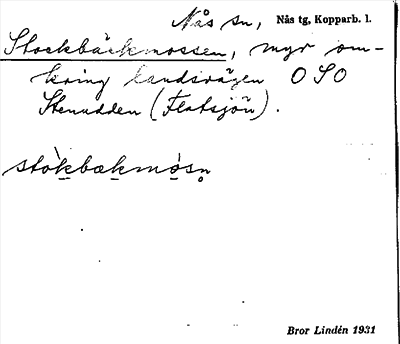 Nås sn, Nås tg, Kopparb. l.
Stockbäckmossen, myr om-
kring landsvägen OSO
Stenudden (Flatsjön).
stòkbækmòsn̥
Bror Lindén 1931